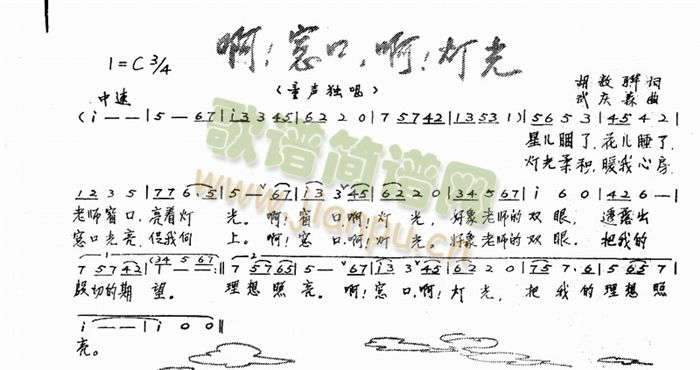 啊!窗口,啊!灯光
1=C 3/4
(童声独唱)
胡敖骅词
武庆森曲
中速
(i — — | 5 — 67 | i3 3 45 | 62 2 0 | 7 57 42 | 13 53 1) | 56 5 3 | 45 4 2 |
星儿睏了,花儿睡了,
灯光柔和,暖我心房,
12 3 5 | 77 6. 5 | 5 — 67 | i3 3 45 | 62 2 0 | 34 5 67 | i 6 0 | 42 6 — |
老师窗口,亮着灯光。啊!窗口啊!灯光,好象老师的双眼,透露出
窗口光亮,促我向上。啊!窗口,啊!灯光。好象老师的双眼,把我的
7 57 42 | (34 5 67 :|| 7 57 65 | 5 — 67 | i3 3 45 | 62 2 0 | 75 7. 6 | 5 65 7 |
殷切的期望。理想照亮。啊!窗口,啊!灯光,把我的理想照
i — — | i 0 0 ||
亮。
歌谱简谱网
www.jianpu.cn